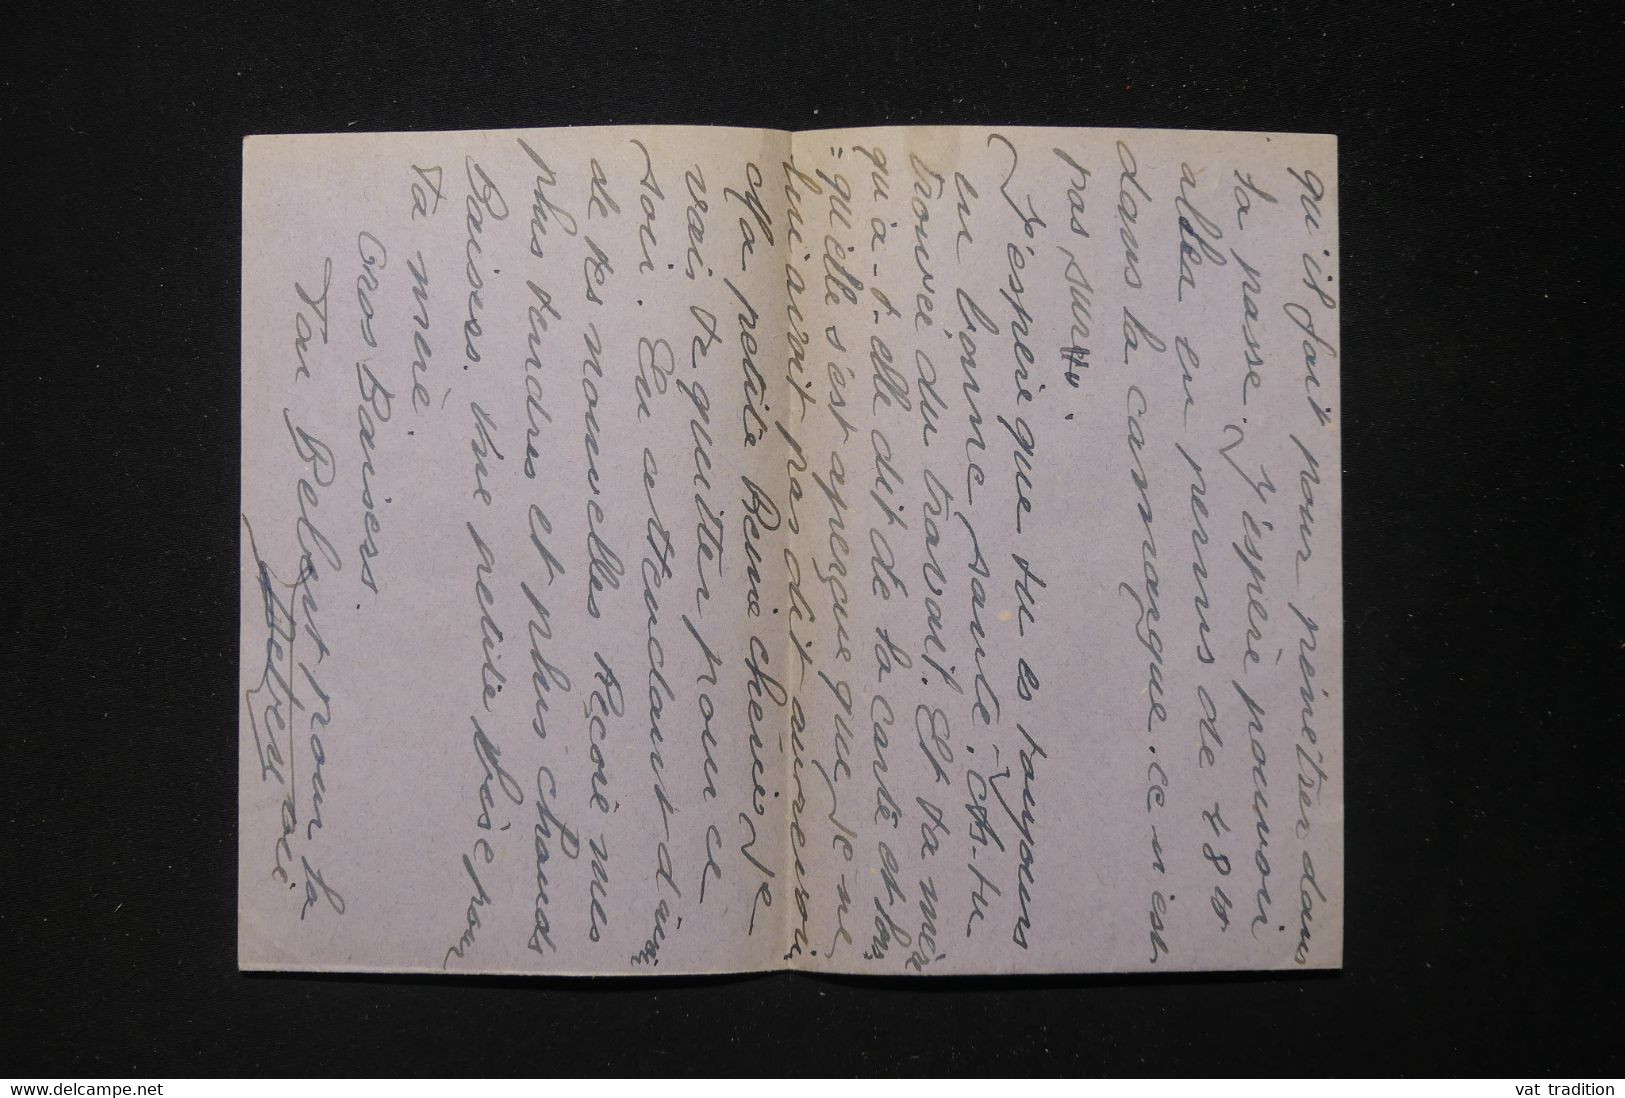 qu'il fait pour pénêtrer dans
la passe. J'éspère pouvoi
aller en perms de 48 h
dans la camargue. ce n'est
pas surr
J'espère que tu es toujours
en bonne santé. As-tu
trouvé du travail. Et ta mèr
qu'a-t-elle dit de la carte et lors
=qu'elle s'est aperçue que je ne
lui avait pas dit aurevoir
Ma petite Reine chérie je
vais te quitter pour ce
soir. En attendant d'avoir
de tes nouvelles Reçoie mes
plus tendres et plus chauds
Baisers. Une petite bise pour
ta mère.
Gros Baisers.
Ton Belge pour la
vie
www.delcampe.net
vat tradition